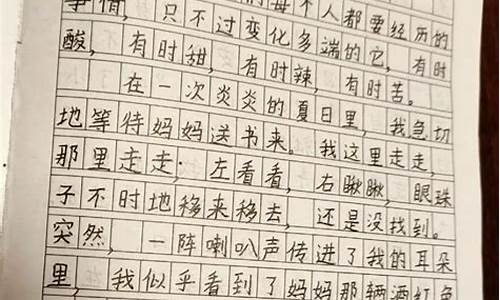 们每个人都要经历的
事情，只不过变化多端的它，有时
酸，有时甜，有时辣，有时苦。
在一次炎炎的夏日里，我急切
地等待妈妈送书来。我这里走走，
那里走走；左看看，右瞅瞅，眼珠
子不时地移来移去，还是没找到。
突然，一阵喇叭声传进了我的耳朵
里，我似乎看到了妈妈那辆酒红色